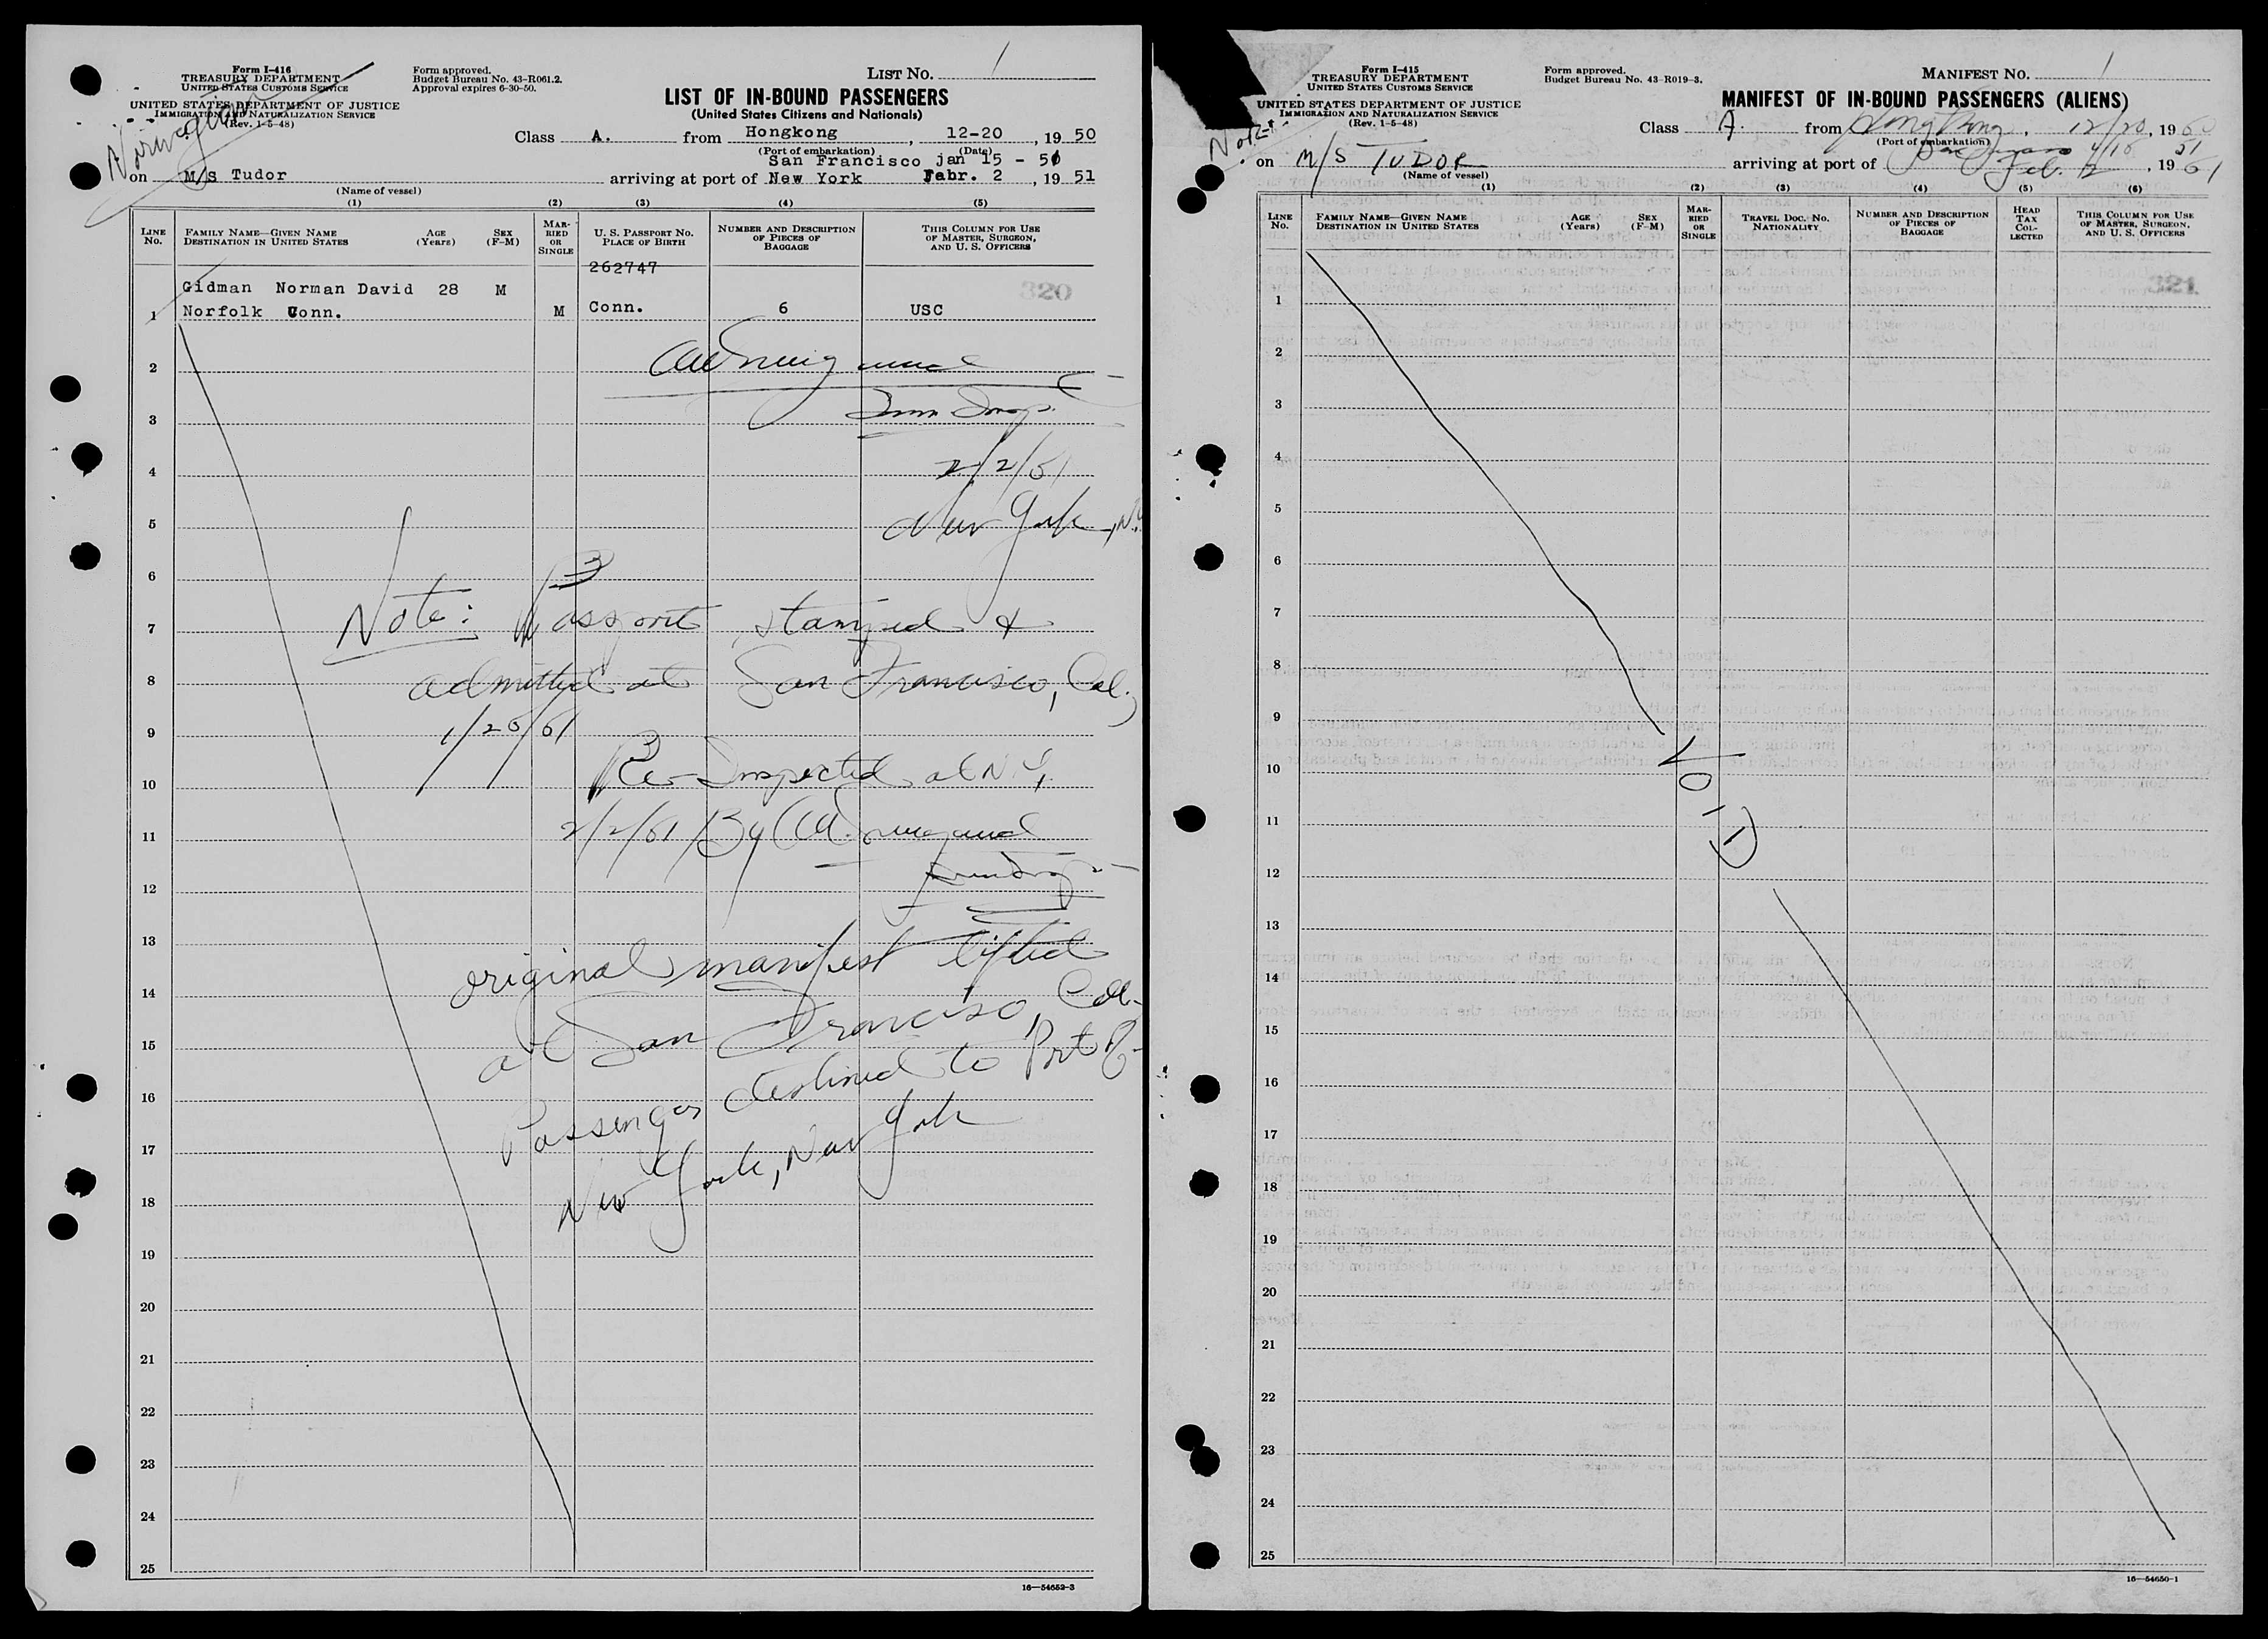 Form I-416
TREASURY DEPARTMENT
UNITED STATES CUSTOMS SERVICE
UNITED STATES DEPARTMENT OF JUSTICE
IMMIGRATION AND NATURALIZATION SERVICE
(Rev. 1-5-48)
Norwegian
Form approved.
Budget Bureau No. 43-R061.2.
Approval expires 6-30-50.
LIST NO. 1
LIST OF IN-BOUND PASSENGERS
(United States Citizens and Nationals)
Class A. from Hongkong, 12-20, 1950
(Port of embarkation) (Date)
San Francisco jan 15 - 51
on M/S Tudor arriving at port of New York Febr. 2, 1951
(Name of vessel)
(1) (2) (3) (4) (5)
LINE No. FAMILY NAME—GIVEN NAME DESTINATION IN UNITED STATES AGE (Years) SEX (F-M) MARRIED OR SINGLE U. S. PASSPORT NO. PLACE OF BIRTH NUMBER AND DESCRIPTION OF PIECES OF BAGGAGE THIS COLUMN FOR USE OF MASTER, SURGEON, AND U. S. OFFICERS
262747
320
Gidman Norman David 28 M
1 Norfolk Conn. M Conn. 6 USC
2
3
4 2/2/51
5 New York, N.Y.
6
7 Note: Passport stamped &
8 admitted at San Francisco, Cal.
9 1/25/51
10 Re-Inspected at N.Y.
11 2/2/51 By
12
13 original manifest lifted
14 at San Francisco, Cal.
15 destined to Port
16 Passenger
17 New York, New York
18
19
20
21
22
23
24
25
16—54652-3
Form I-415
TREASURY DEPARTMENT
UNITED STATES CUSTOMS SERVICE
UNITED STATES DEPARTMENT OF JUSTICE
IMMIGRATION AND NATURALIZATION SERVICE
(Rev. 1-5-48)
Form approved.
Budget Bureau No. 43-R019-3.
MANIFEST NO. 1
MANIFEST OF IN-BOUND PASSENGERS (ALIENS)
Class A. from Hong Kong, 12/20, 1950
(Port of embarkation)
on M/S TUDOR arriving at port of Feb. 2, 1951
(Name of vessel)
(1) (2) (3) (4) (5) (6)
LINE No. FAMILY NAME—GIVEN NAME DESTINATION IN UNITED STATES AGE (Years) SEX (F-M) MARRIED OR SINGLE TRAVEL DOC. NO. NATIONALITY NUMBER AND DESCRIPTION OF PIECES OF BAGGAGE HEAD TAX COLLECTED THIS COLUMN FOR USE OF MASTER, SURGEON, AND U. S. OFFICERS
321
1
2
3
4
5
6
7
8
9
10
VOID
11
12
13
14
15
16
17
18
19
20
21
22
23
24
25
16—54650-1